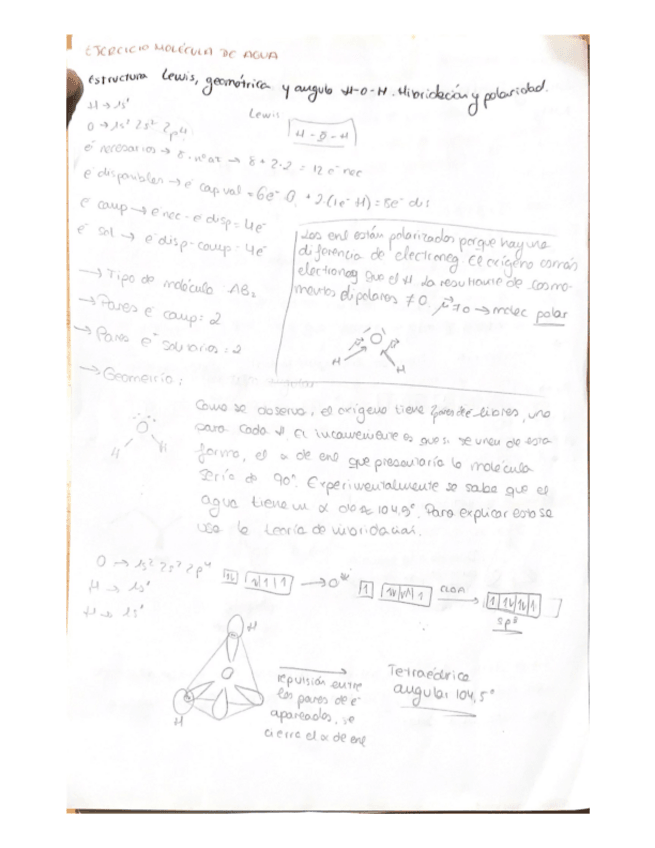 EJERCICIO MOLÉCULA DE AGUA
Estructura Lewis, geométrica y angulo H-O-H. Hibridación y polaridad.
H → 1s¹
O → 1s² 2s² 2p⁴
Lewis
H - O - H
e⁻ necesarios → 8 · nº at → 8 + 2·2 = 12 e⁻ nec
e⁻ disponibles → e⁻ cap val = 6e⁻ O + 2·(1e⁻ H) = 8e⁻ dis
e⁻ comp → e⁻ nec - e⁻ disp = 4e⁻
e⁻ sol → e⁻ disp - comp = 4e⁻
→ Tipo de molécula AB₂
→ Pares e⁻ comp: 2
→ Pares e⁻ solitarios: 2
→ Geometría:
Los enl están polarizados porque hay una
diferencia de electroneg. El oxígeno es más
electroneg que el H. La resultante de los mo-
mentos dipolares ≠ 0. μ ≠ 0 → molec polar
O
H H
Como se observa, el oxígeno tiene 2 pares de e⁻ libres, uno
para cada H. El inconveniente es que si se unen de esta
forma, el α de enl que presentaría la molécula
sería de 90º. Experimentalmente se sabe que el
agua tiene un α de ≈ 104,5º. Para explicar esto se
usa la teoría de hibridación.
O
H H
O → 1s² 2s² 2p⁴
H → 1s¹
H → 1s¹
→ O*
CLOA
sp³
H
O
H
repulsión entre
los pares de e⁻
apareados, se
cierra el α de enl
Tetraédrica
angular 104,5º